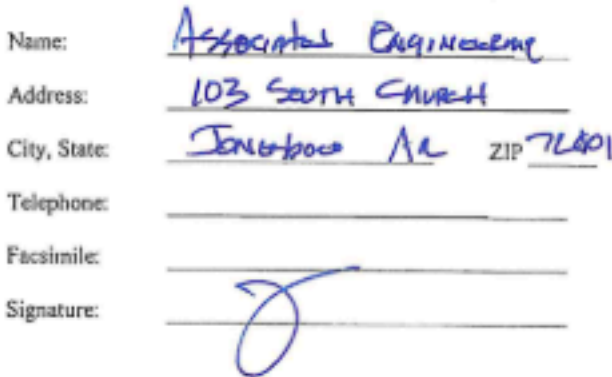 Name: Associated Engineering
Address: 103 South Church
City, State: Jonesboro AR ZIP 72401
Telephone:
Facsimile:
Signature: